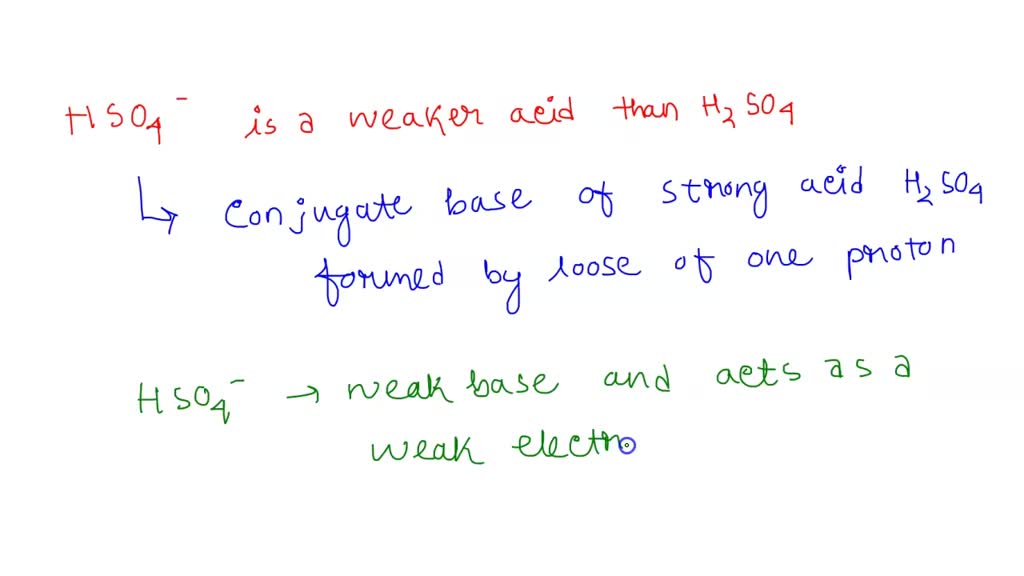 HSO₄⁻ is a weaker acid than H₂SO₄
↳ Conjugate base of strong acid H₂SO₄
formed by loose of one proton
HSO₄⁻ → weak base and acts as a
weak electr